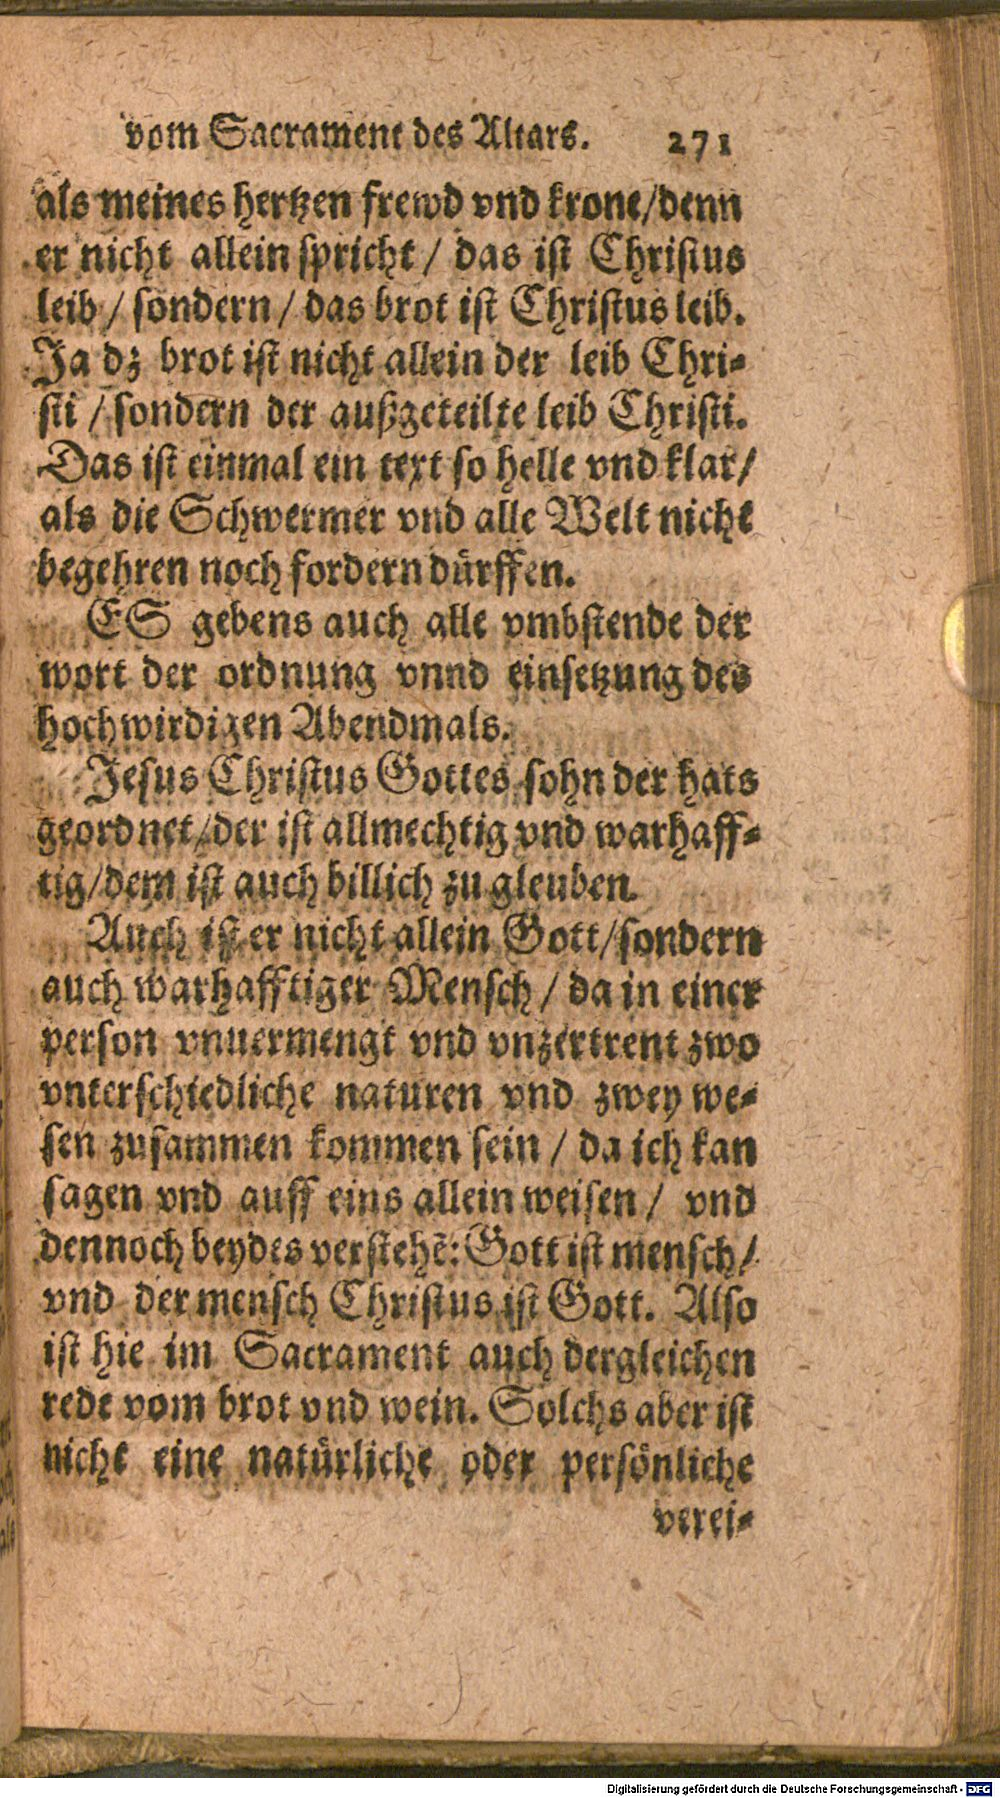 vom Sacrament des Altars. 271
als meines hertzen frewd vnd krone/denn
er nicht allein spricht / das ist Christus
leib / sondern / das brot ist Christus leib.
Ja dz brot ist nicht allein der leib Chri-
sti / sondern der außgeteilte leib Christi.
Das ist einmal ein text so helle vnd klar/
als die Schwermer vnd alle Welt nicht
begehren noch fordern dürffen.
ES gebens auch alle vmbstende der
wort der ordnung vnnd einsetzung des
hochwirdigen Abendmals.
Jesus Christus Gottes sohn der hats
geordnet/der ist allmechtig vnd warhaff-
tig/dem ist auch billich zu gleuben.
Auch ist er nicht allein Gott/sondern
auch warhafftiger Mensch / da in einer
person vnuermengt vnd vnzertrent zwo
vnterschiedliche naturen vnd zwey we-
sen zusammen kommen sein / da ich kan
sagen vnd auff eins allein weisen / vnd
dennoch beydes verstehẽ: Gott ist mensch/
vnd der mensch Christus ist Gott. Also
ist hie im Sacrament auch dergleichen
rede vom brot vnd wein. Solchs aber ist
nicht eine natürliche oder persönliche
verei-
Digitalisierung gefördert durch die Deutsche Forschungsgemeinschaft - DFG